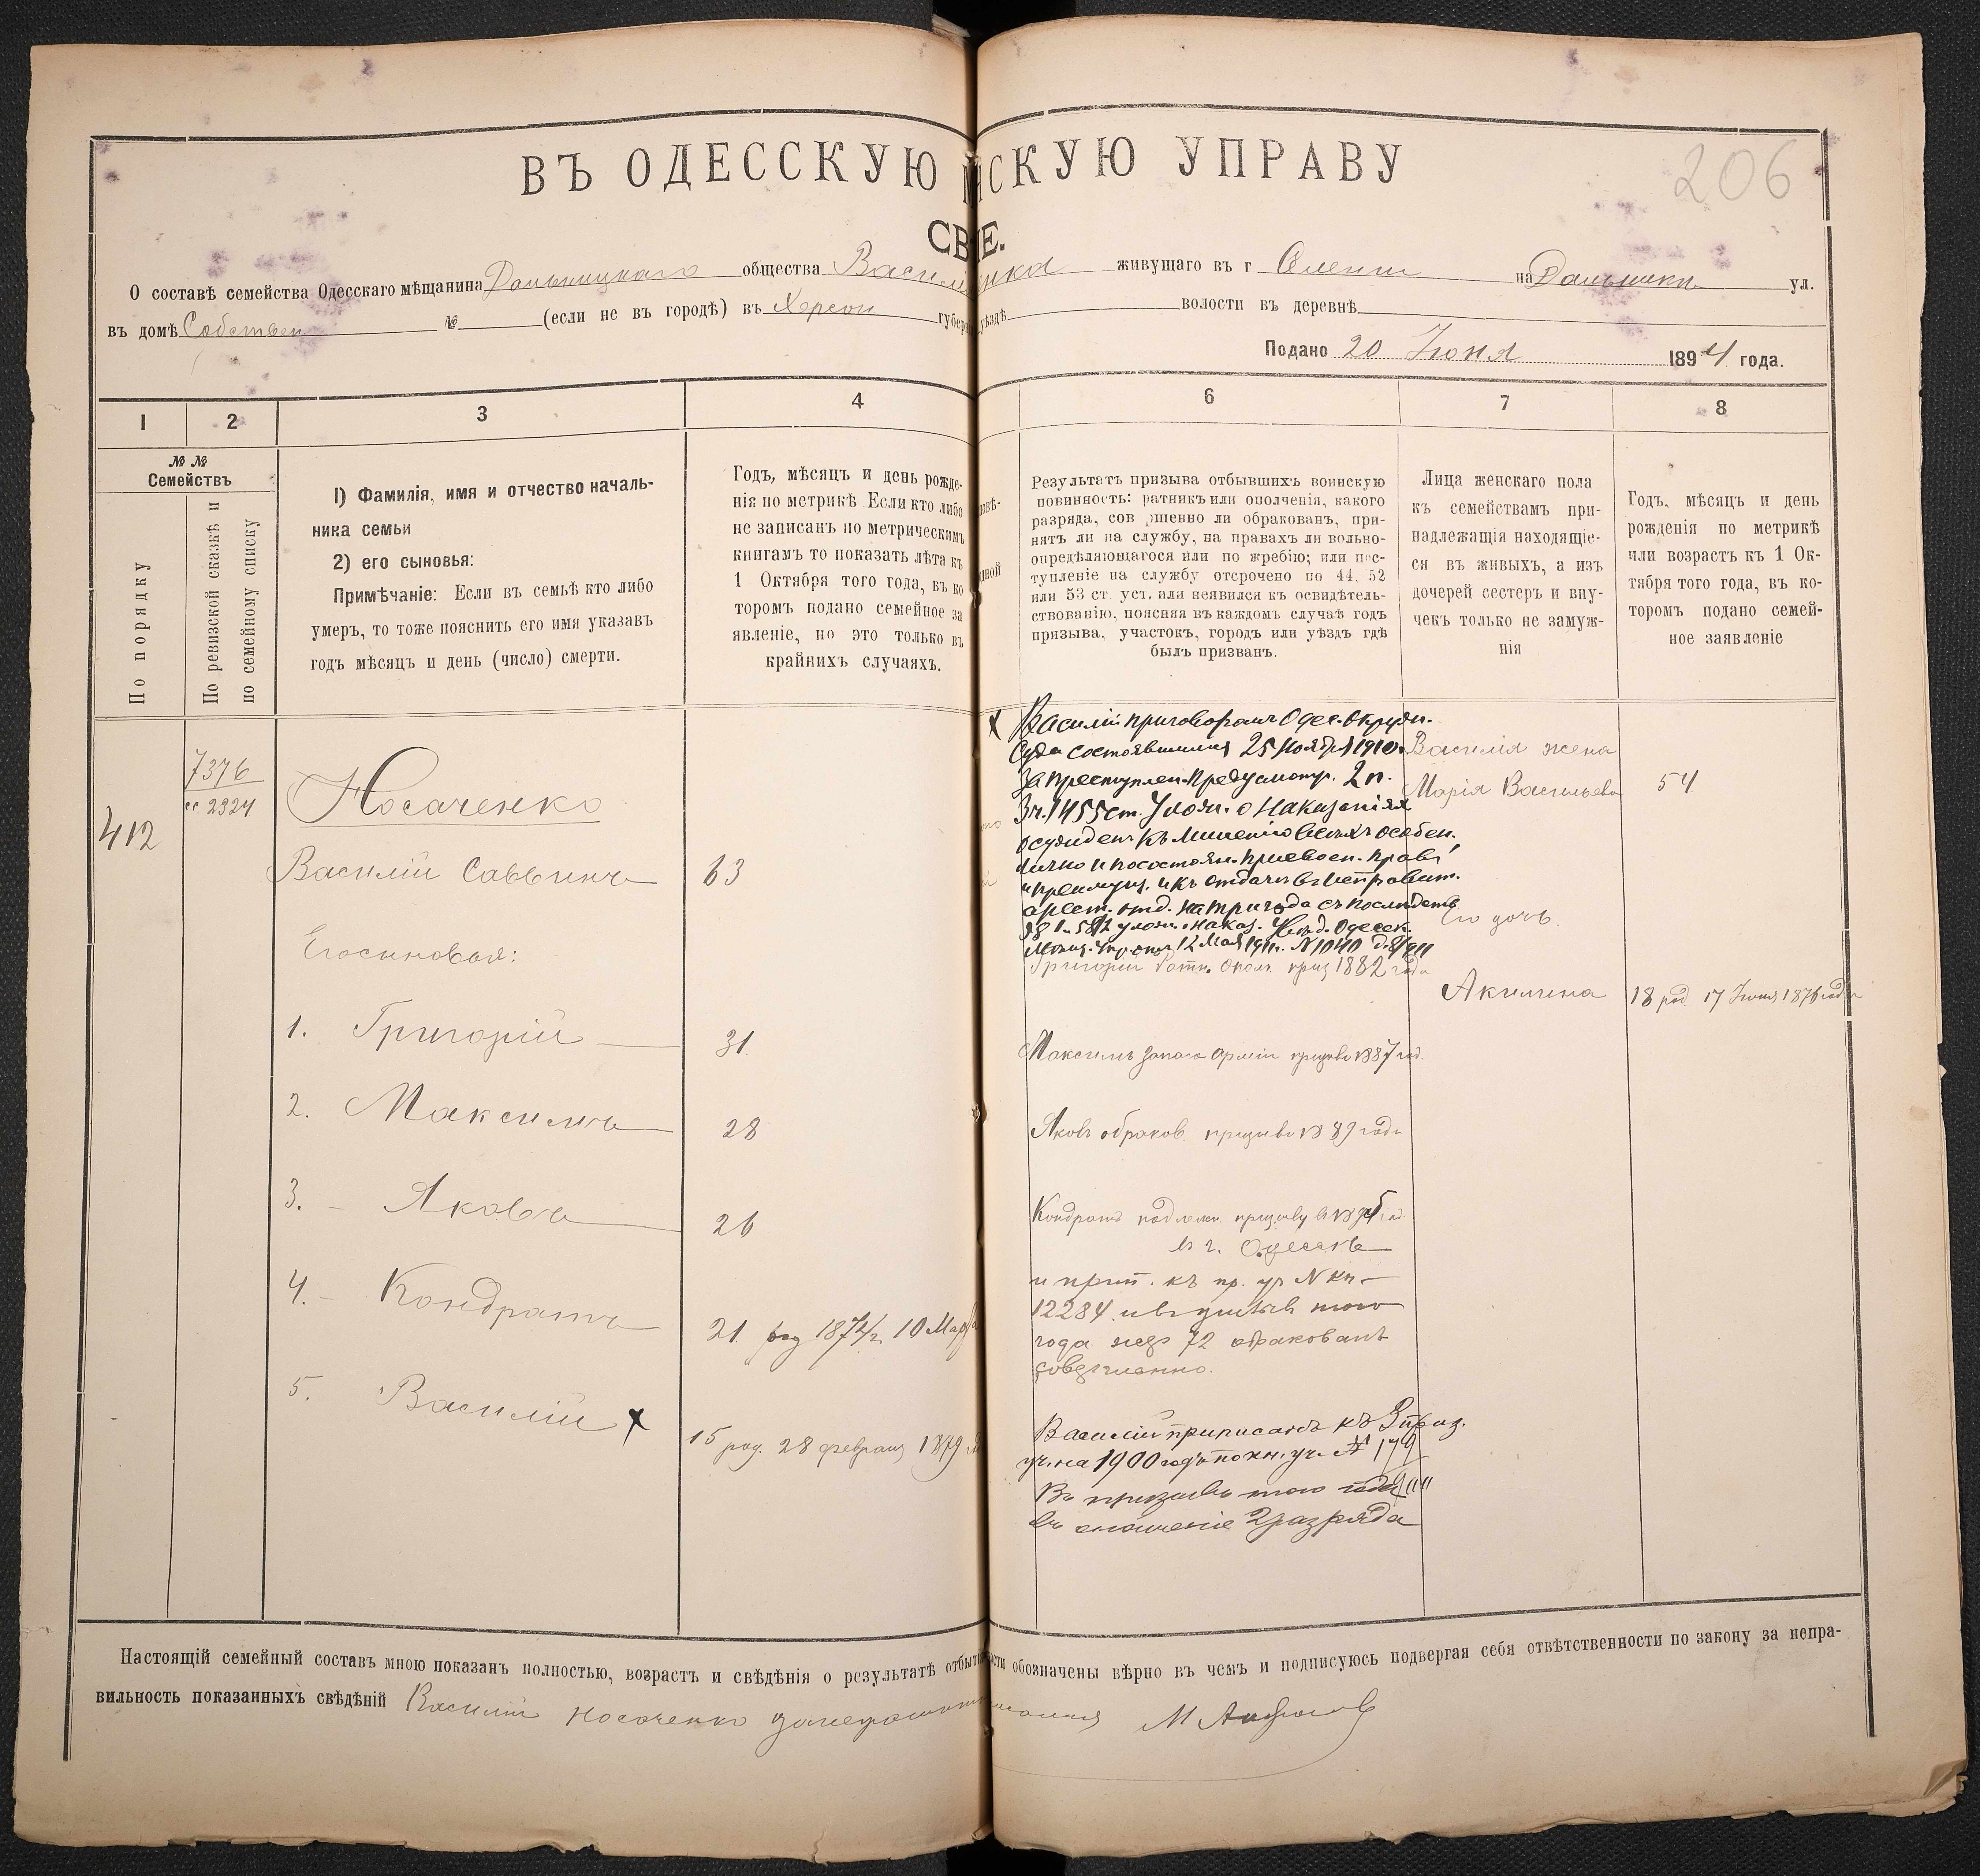 ВЪ ОДЕССКУЮ СКУЮ УПРАВУ
206
СВ Е.
О составѣ семейства Одесскаго мѣщанина Дальницкаго общества живущаго въ г на Дальника ул.
въ домѣ Собствен № (если не въ городѣ) въ Херсон губер уѣздѣ волости въ деревнѣ
Подано 20 Іюня 1894 года.
1 2 3 4 6 7 8
№ № Семействъ
По порядку
По ревизской сказкѣ и по семейному списку
1) Фамилія, имя и отчество началь-
ника семьи
2) его сыновья:
Примѣчаніе: Если въ семьѣ кто либо
умеръ, то тоже пояснить его имя указавъ
годъ мѣсяцъ и день (число) смерти.
Годъ, мѣсяцъ и день рожде-
нія по метрикѣ Если кто либо
не записанъ по метрическимъ
книгамъ то показать лѣта къ
1 Октября того года, въ ко
торомъ подано семейное за
явленіе, но это только въ
крайнихъ случаяхъ.
Результатъ призыва отбывшихъ воинскую
повинность: ратникъ или ополченія, какого
разряда, сов ршенно ли обракованъ, при-
нятъ ли на службу, на правахъ ли вольно-
опредѣляющагося или по жребію; или пос-
тупленіе на службу отсрочено по 44. 52
или 53 ст. уст. или неявился къ освидѣтель-
ствованію, поясняя въ каждомъ случаѣ годъ
призыва, участокъ, городъ или уѣздъ гдѣ
былъ призванъ.
Лица женскаго пола
къ семействамъ при-
надлежащія находящіе-
ся въ живыхъ, а изъ
дочерей сестеръ и вну-
чекъ только не замуж-
нія
Годъ, мѣсяцъ и день
рожденія по метрикѣ
или возрастъ къ 1 Ок-
тября того года, въ ко-
торомъ подано семей-
ное заявленіе
412
7376
сс 2324
Носаченко
Василій Саввинъ 63
Его сыновья:
1. Григорій 31
2. Максимъ 28
3. Яковъ 26
4. Кондратъ 21 10 Мар
5. Василій x 15 род. 28 февраля 1879
x Василій приговоромъ Одес. Окружн.
Суда состоявшимся 25 Ноября 1910г.
За преступлен. предусмотр. 2 п.
3 ч. 1455 ст. Улож. о Наказаніях
осужден къ лишенію всѣхъ особен.
лично и по состоян. присвоен. правъ
и преимущ. и къ отдачѣ въ исправит.
арест. отд. на три года съ послѣдств.
улож. Наказ. Одесск.
12 Мая 1911г. N 1040
Григорій Ратн. Опол. приз 1882 года
Максимъ Запаса Арміи призыва 1887 год.
Яковъ обраков. призыва 1889 года
Кондратъ подлеж. призыву въ
въ г. Одессѣ
и прип. къ пр. уч N кн
12284 и въ призывъ того
года жер 72 обракованъ
совершенно.
Василій приписанъ къ 3 приз.
уч. на 1900 годъ по кн. уч. №
Въ призывъ того года
въ ополченіе 2 разряда
Василія жена
Марія Васильева 54
Его дочь
Акилина 18 род 17 Іюня 1876 года
Настоящій семейный составъ мною показанъ полностью, возрастъ и свѣдѣнія о результатѣ отбыт сти обозначены вѣрно въ чемъ и подписуюсь подвергая себя отвѣтственности по закону за непра-
вильность показанныхъ свѣдѣній Василій Носаченко